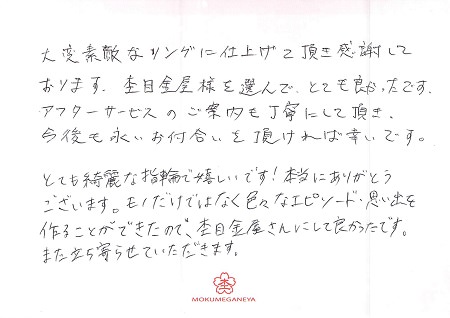 大変素敵なリングに仕上げて頂き感謝して
おります。杢目金屋様を選んで、とても良かったです。
アフターサービスのご案内も丁寧にして頂き、
今後も永いお付合いを頂ければ幸いです。
とても綺麗な指輪で嬉しいです!本当にありがとう
ございます。モノだけではなく色々なエピソード・思い出を
作ることができたので、杢目金屋さんにして良かったです。
また立ち寄らせていただきます。
杢
MOKUMEGANEYA